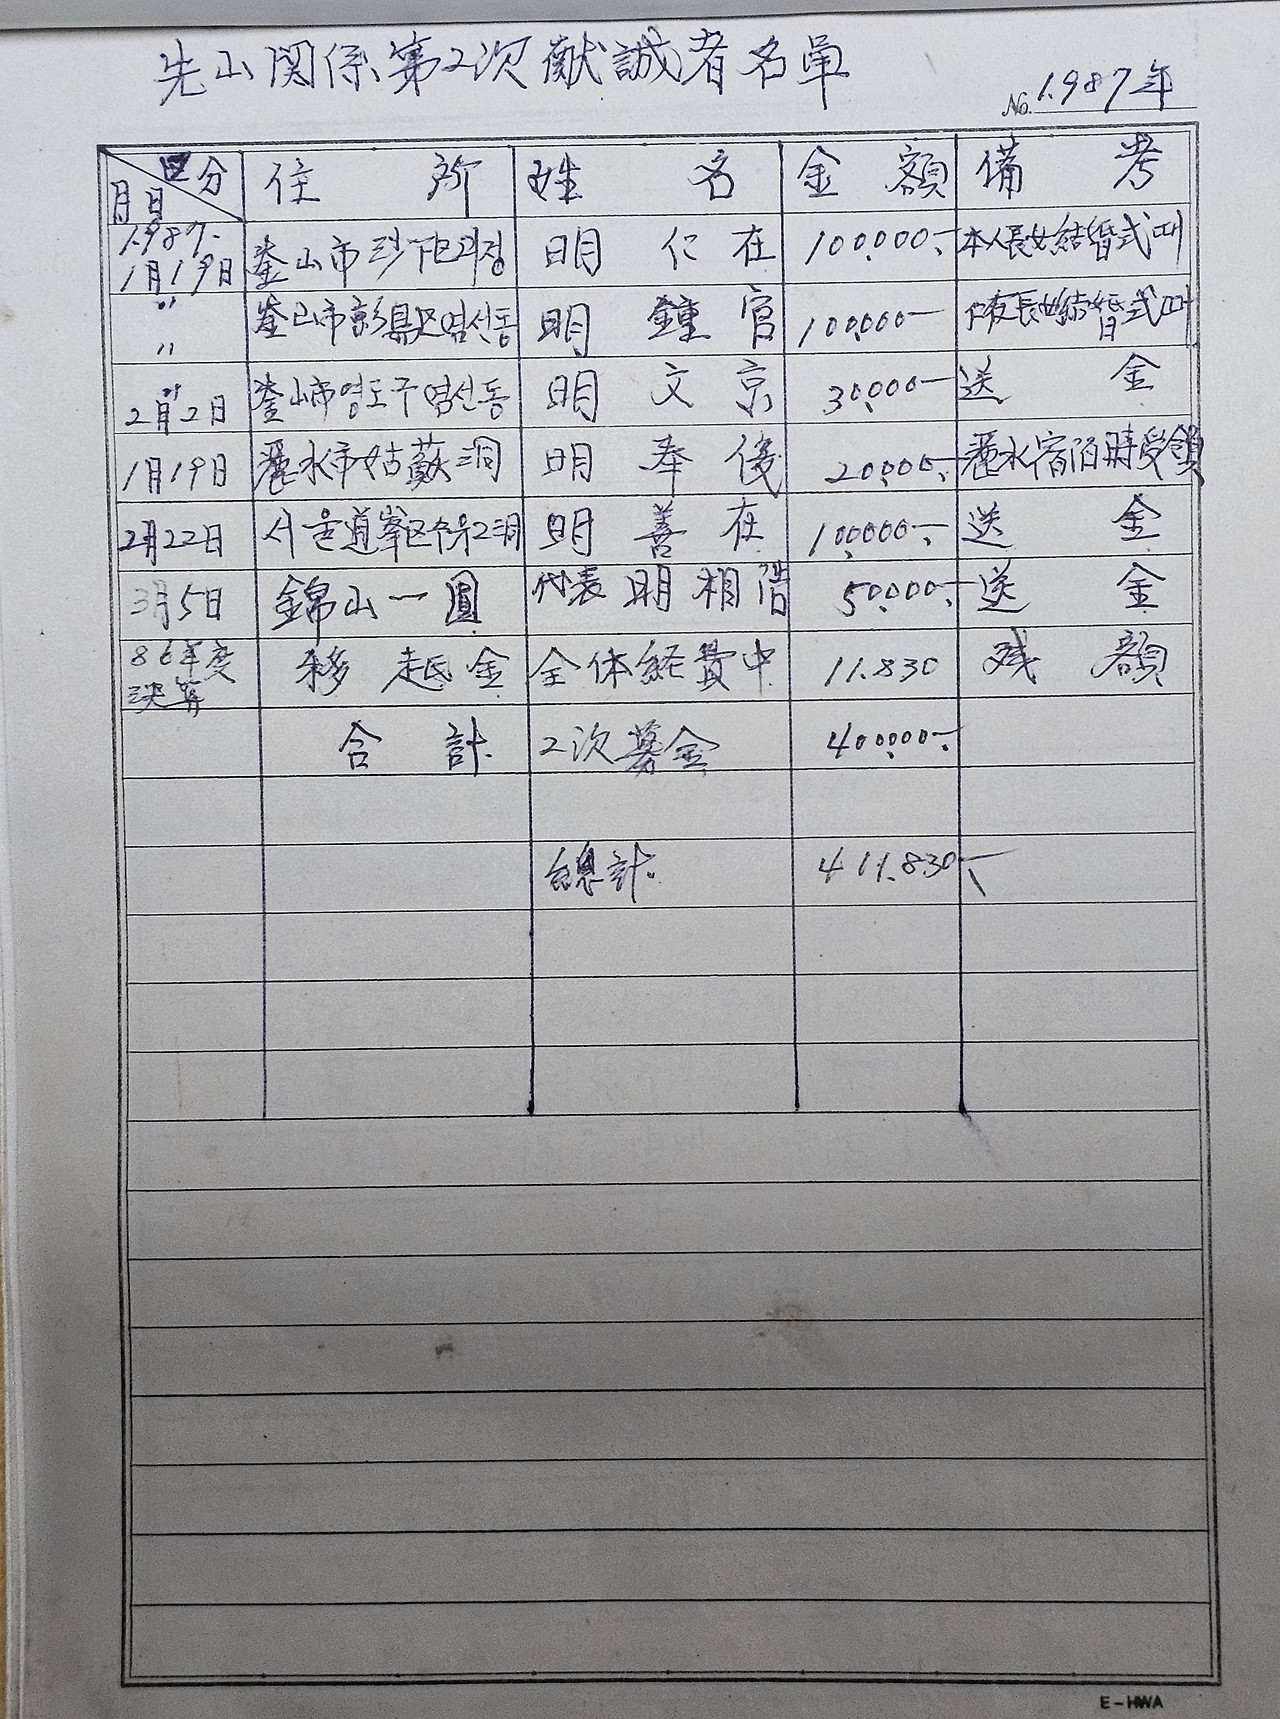 先山関係第2次献誠者名單
No. 1.987年
区分
月日
住所 姓名 金額 備考
1.987.
1月19日 釜山市 沙下区괴정 明仁在 100.000- 本人長女結婚式때
〃 〃 釜山市影島区영선동 明鍾官 100.000- 長女結婚式때
〃
2月2日 釜山市영도구영선동 明文京 30.000- 送金
1月19日 麗水市姑蘇洞 明奉俊 20.000- 麗水宿泊時受領
2月22日 서울道峯区수유2洞 明善在 100.000- 送金
3月5日 錦山一圓 代表 明相 50.000- 送金
86年度
決算 移越金 全体経費中 11.830 残額
合計 2次募金 400.000-
總計 411.830-
E-HWA